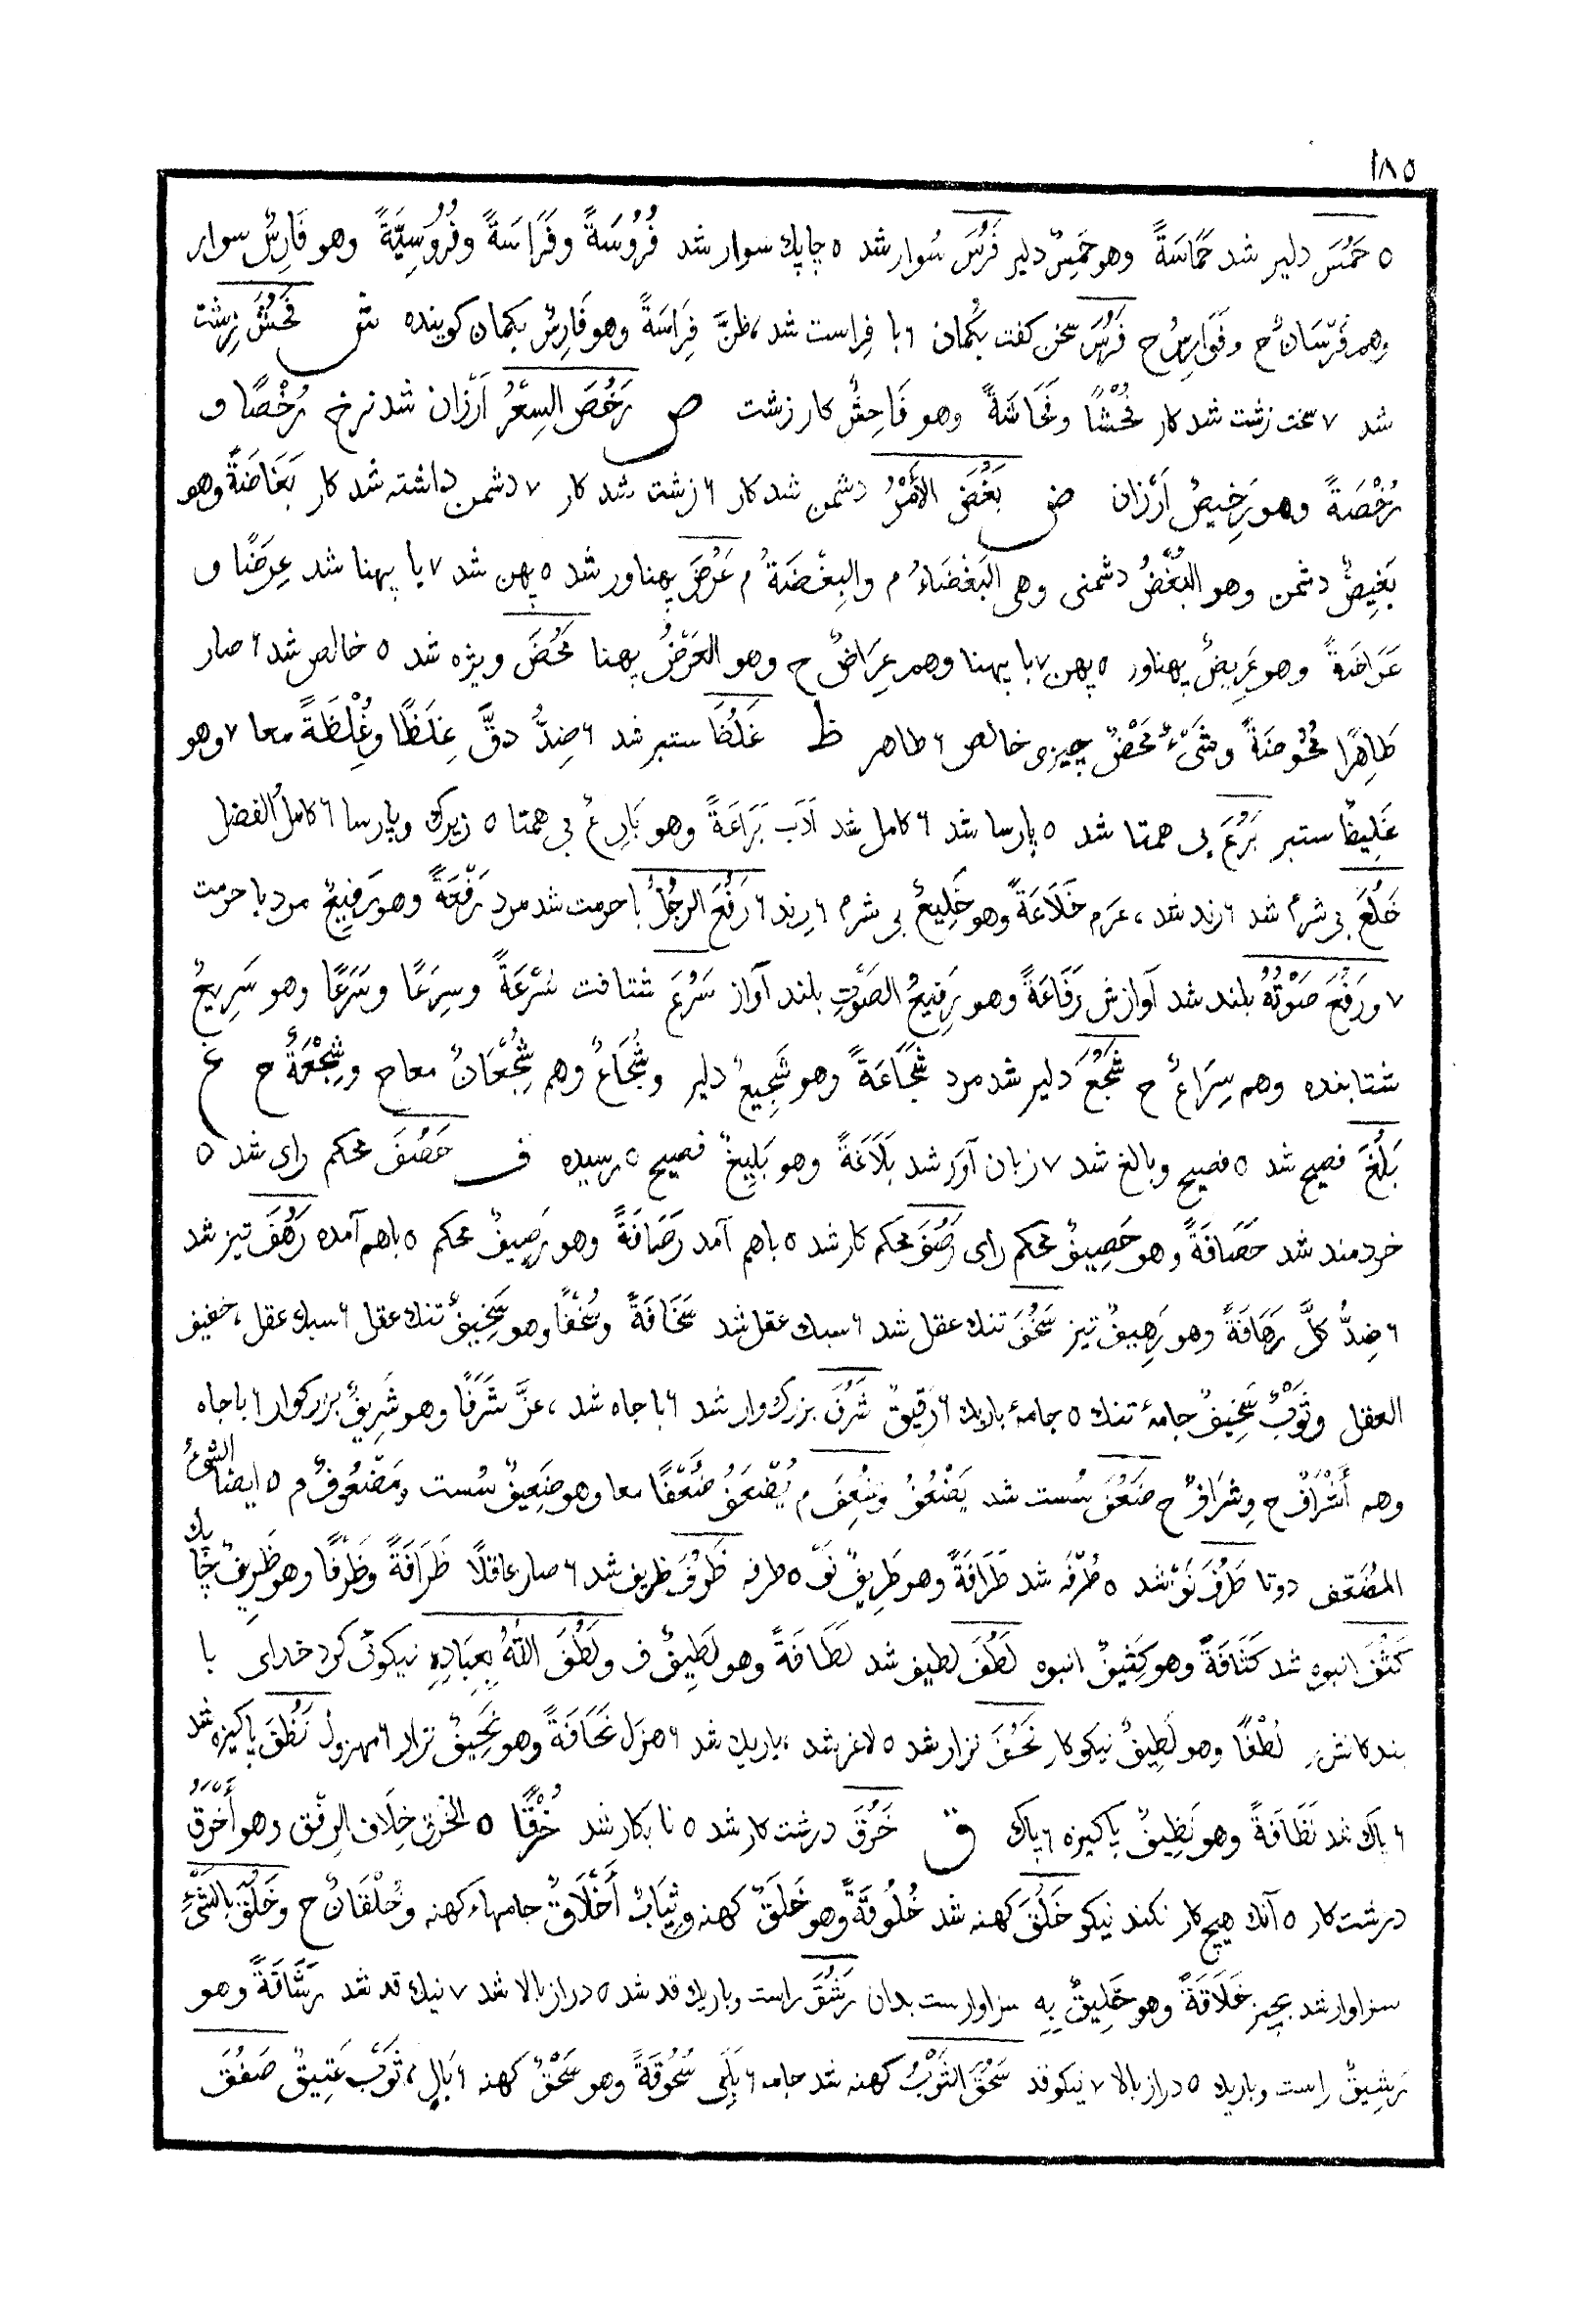 ١٨٥
٥ حَمُسَ دلیر شد حَمَاسَةً وهو حَمِسٌ دلیر فَرُسَ سُوار شد ٥ چاپك سوار شد فُرُوسَةً وفَرَاسَةً وفُرُوسِيَّةً وهو فَارِسٌ سوار
وهم فُرْسَانٌ ح وفَوَارِسُ ح فَرُسَ سخن کفت بکُمان ٦ با فِراست شد، ظنَّ فِرَاسَةً وهو فَارِسٌ بکمان کوینده ش فَحُشَ زِشت
شد ٧ سخت زشت شد کار فُحْشًا وفَحَاشَةً وهو فَاحِشٌ کار زشت ص رَخُصَ السِعْرُ اَرْزان شد نرخ رُخْصًا و
رُخْصَةً وهو رَخِيصٌ اَرْزان ض بَغُضَ الأَمْرُ دشمن شد کار ٦ زشت شد کار ٧ دشمن داشته شد کار بَغَاضَةً وهو
بَغِيضٌ دشمن وهو البُغْضُ دشمنی وهی البَغْضَاءُ م والبِغْضَةُ م عَرُضَ پهناور شد ٥ پهن شد ٧ با پهنا شد عِرَضًا و
عَرَاضَةً وهو عَرِيضٌ پهناور ٥ پهن ٧ با پهنا وهم عِرَاضٌ ح وهو العَرْضُ پهنا مَحُضَ ویژه شد ٥ خالص شد ٦ صار
طَاهِرًا مُحُوضَةً وشَيْءٌ مَحْضٌ چیزی خالص ٦ طاهر ظ غَلُظَ ستبر شد ٦ ضِدُّ دقَّ غِلَظًا وغُلْظَةً معا ٧ وهو
غَلِيظٌ ستبر بَرُعَ بی همتا شد ٥ پارسا شد ٦ کامل شد اَدَب بَرَاعَةً وهو بَارِعٌ بی همتا ٥ زیرك وپارسا ٦ کاملُ الفضل
خَلُعَ بی شرم شد ٦ رند شد، عرَم خَلَاعَةً وهو خَلِيعٌ بی شرم ٦ رِند ٦ رَفُعَ الرجُلُ با حرمت شد مرد رَفْعَةً وهو رَفِيعٌ مرد با حرمت
٧ ورَفُعَ صَوْتُهُ بلند شد آوازش رَفَاعَةً وهو رَفِيعُ الصَوْتِ بلند آواز سَرُعَ شتافت سُرْعَةً وسِرَعًا وسَرَعًا وهو سَرِيعٌ
شتابنده وهم سِرَاعٌ ح شَجُعَ دلیر شد مرد شَجَاعَةً وهو شَجِيعٌ دلیر وشُجَاعٌ وهم شُجْعَانٌ معا ح وشِجْعَةٌ ح غ
بَلُغَ فصیح شد ٥ فصیح وبالغ شد ٧ زبان آور شد بَلَاغَةً وهو بَلِيغٌ فصیح ٥ رسیده ف حَصُفَ محکم رای شد ٥
خردمند شد حَصَافَةً وهو حَصِيفٌ محکم رای رَصُفَ محکم کار شد ٥ باهم آمد رَصَافَةً وهو رَصِيفٌ محکم ٥ باهم آمده رَهُفَ تیز شد
٦ ضِدُّ كلَّ رَهَافَةً وهو رَهِيفٌ تیز سَخُفَ تنك عقل شد ٦ سبك عقل شد سَخَافَةً وسُخْفًا وهو سَخِيفٌ تنك عقل ٦ سبك عقل، خفیف
العقل وثَوْبٌ سَخِيفٌ جامهٔ تنك ٥ جامهٔ باریك ٦ رَقِيقٌ شَرُفَ بزرك وار شد ٦ با جاه شد، عزَّ شَرَفًا وهو شَرِيفٌ بزرکوار ٦ با جاه
وهم أَشْرَافٌ ح وشرَافٌ ح ضَعُفَ سُست شد يَضْعُفُ وضُعِفَ م يُضْعَفُ ضُعْفًا معا وهو ضَعِيفٌ سُست ومَضْعُوفٌ م ٥ ایضا الشیءُ
المضَعَّف دوتا طَرُفَ نَوْ شد ٥ طُرْفَه شد طَرَافَةً وهو طَرِيفٌ نَوْ ٥ طرفه ظَرُفَ ظریف شد ٦ صار عاقلًا ظَرَافَةً وظَرْفًا وهو ظَرِيفٌ چاپك
كَثُفَ انبوه شد كَثَافَةً وهو كَثِيفٌ انبوه لَطُفَ لطیف شد لَطَافَةً وهو لَطِيفٌ ف ولَطُفَ اللّٰهُ بِعِبَادِهِ نیکوئی کرد خدای با
بندکانش لُطْفًا وهو لَطِيفٌ نیکوکار نَحُفَ نزار شد ٥ لاغر شد، باریك شد ٦ هزَل نَحَافَةً وهو نَحِيفٌ نزار ٦ مهزول نَظُفَ پاکیزه شد
٦ پاك شد نَظَافَةً وهو نَظِيفٌ پاکیزه ٦ پاك ق خَرُقَ درشت کار شد ٥ نا بکار شد خُرْقًا ٥ الخرق خِلَاف الرِفْق وهو أَخْرَقُ
درشت کار ٥ آنك هیچ کار نکند نیکو خَلُقَ کهنه شد خُلُوقَةً وهو خَلَقٌ کهنه وثِيَابٌ أَخْلَاقٌ جامهاء کهنه وخُلْقَانٌ ح وخَلُقَ بالشَیْءِ
سزاوار شد بچیز خَلَاقَةً وهو خَلِيقٌ بِهِ سزاوارست بدان رَشُقَ راست وباریك قد شد ٥ دراز بالا شد ٧ نیك قد شد رَشَاقَةً وهو
رَشِيقٌ راست وباریك ٥ دراز بالا ٧ نیکو قد سَحُقَ الثَوْبُ کهنه شد جامه ٦ بَلِیَ سُحُوقَةً وهو سَحْقٌ کهنه ٦ بَالٍ، ثَوْبٌ عَتِيقٌ صَفُقَ